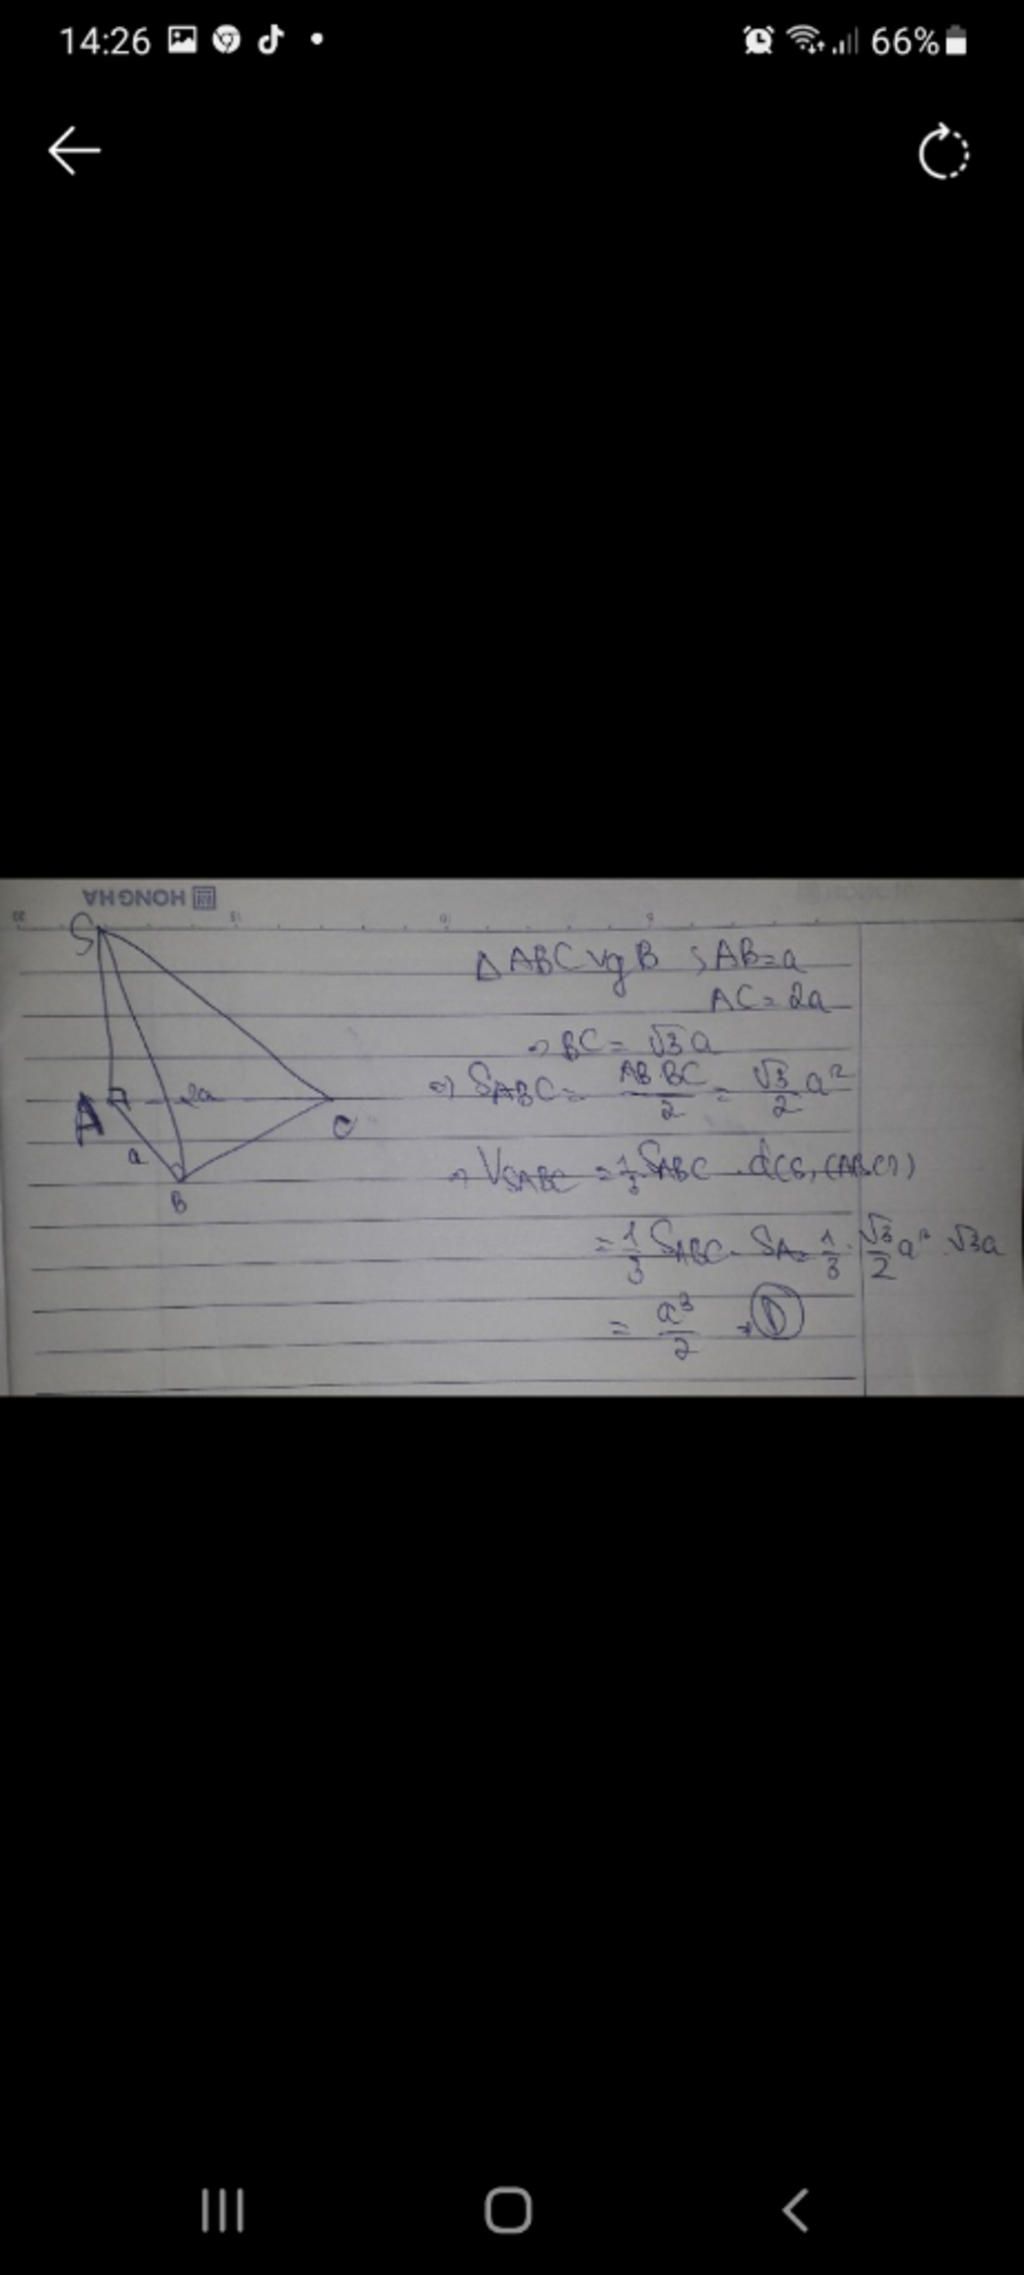 14:26
66%
HONG HA
S
A
2a
C
a
B
Δ ABC vg B , AB = a
AC = 2a
=> BC = √3 a
=> S_ABC = AB.BC/2 = √3/2 a²
=> V_SABC = 1/3 S_ABC . d(S, (ABC))
= 1/3 S_ABC . SA = 1/3 . √3/2 a² . √3a
= a³/2 → D